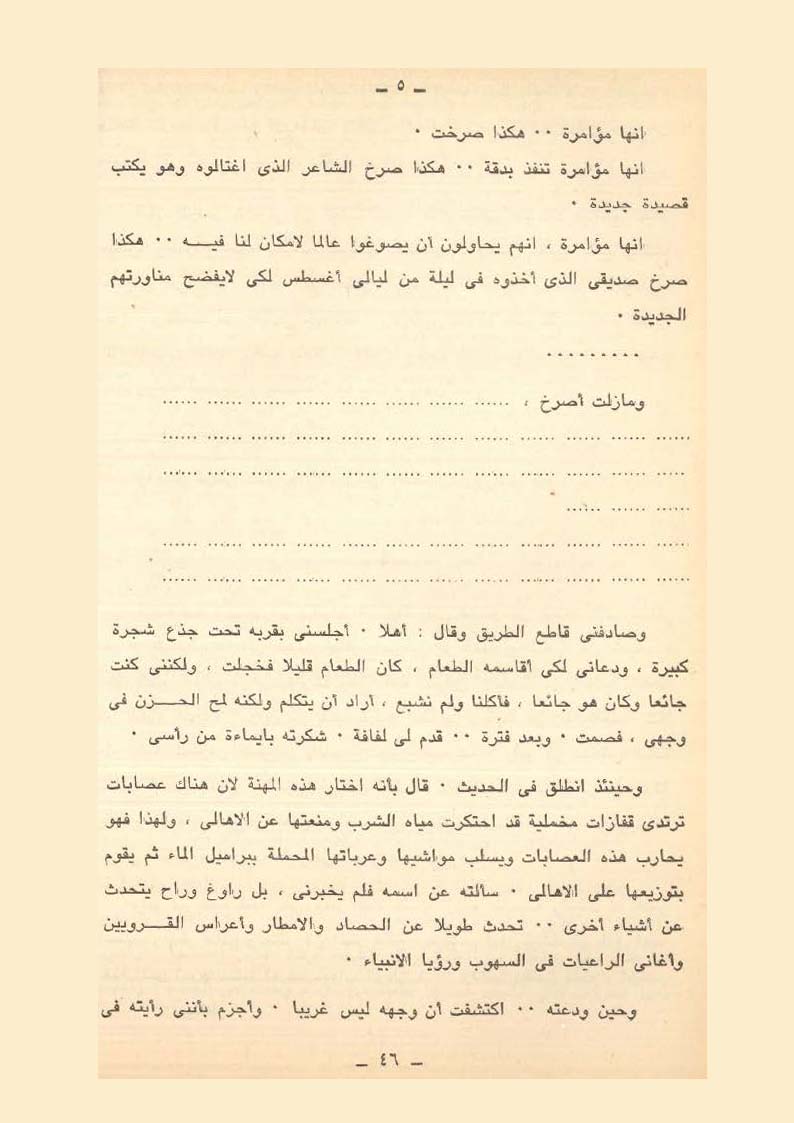 ــ ٥ ــ
انها مؤامرة ٠٠ هكذا صرخت ٠
انها مؤامرة تنفذ بدقة ٠٠ هكذا صرخ الشاعر الذى اغتالوه وهو يكتب
قصيدة جديدة ٠
انها مؤامرة ، انهم يحاولون أن يصوغوا عالما لامكان لنا فيـــه ٠٠ هكذا
صرخ صديقى الذى أخذوه فى ليلة من ليالى أغسطس لكى لايفضح مناورتهم
الجديدة ٠
٠٠٠٠٠٠٠٠٠
ومازلت أصرخ ، ...... ...... ...... ...... ...... ...... ...... ......
...... ...... ...... ...... ...... ...... ...... ...... ...... ...... ...... ......
...... ...... ...... ...... ...... ...... ...... ...... ...... ...... ...... ......
...... ...... ......
...... ...... ...... ...... ...... ...... ...... ...... ...... ...... ...... ......
...... ...... ...... ...... ...... ...... ...... ...... ...... ...... ...... ......
وصادفنى قاطع الطريق وقال : أهلا ٠ أجلسنى بقربه تحت جذع شجرة
كبيرة ، ودعانى لكى أقاسمه الطعام ، كان الطعام قليلا فخجلت ، ولكننى كنت
جائعا وكان هو جائعا ، فأكلنا ولم نشبع ، أراد أن يتكلم ولكنه لمح الحـــزن فى
وجهى ، فصمت ٠ وبعد فترة ٠٠ قدم لى لفافة ٠ شكرته بايماءة من رأسى ٠
وحينئذ انطلق فى الحديث ٠ قال بأنه اختار هذه المهنة لان هناك عصابات
ترتدى قفازات مخملية قد احتكرت مياه الشرب ومنعتها عن الاهالى ، ولهذا فهو
يحارب هذه العصابات ويسلب مواشيها وعرباتها المحملة ببراميل الماء ثم يقوم
بتوزيعها على الاهالى ٠ سألته عن اسمه فلم يخبرنى ، بل راوغ وراح يتحدث
عن أشياء أخرى ٠٠ تحدث طويلا عن الحصاد والامطار وأعراس القـــرويين
وأغانى الراعيات فى السهوب ورؤيا الانبياء ٠
وحين ودعته ٠٠ اكتشفت أن وجهه ليس غريبا ٠ وأجزم بأننى رأيته فى
ــ ٤٦ ــ